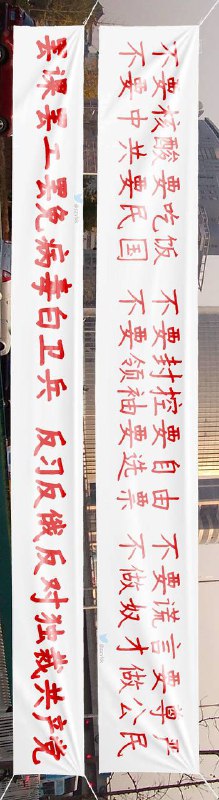 不要核酸要吃饭 不要封控要自由 不要谎言要尊严
不要中共要民国 不要领袖要选票 不做奴才做公民
罢课罢工罢免病毒白卫兵 反习反俄反对独裁共产党